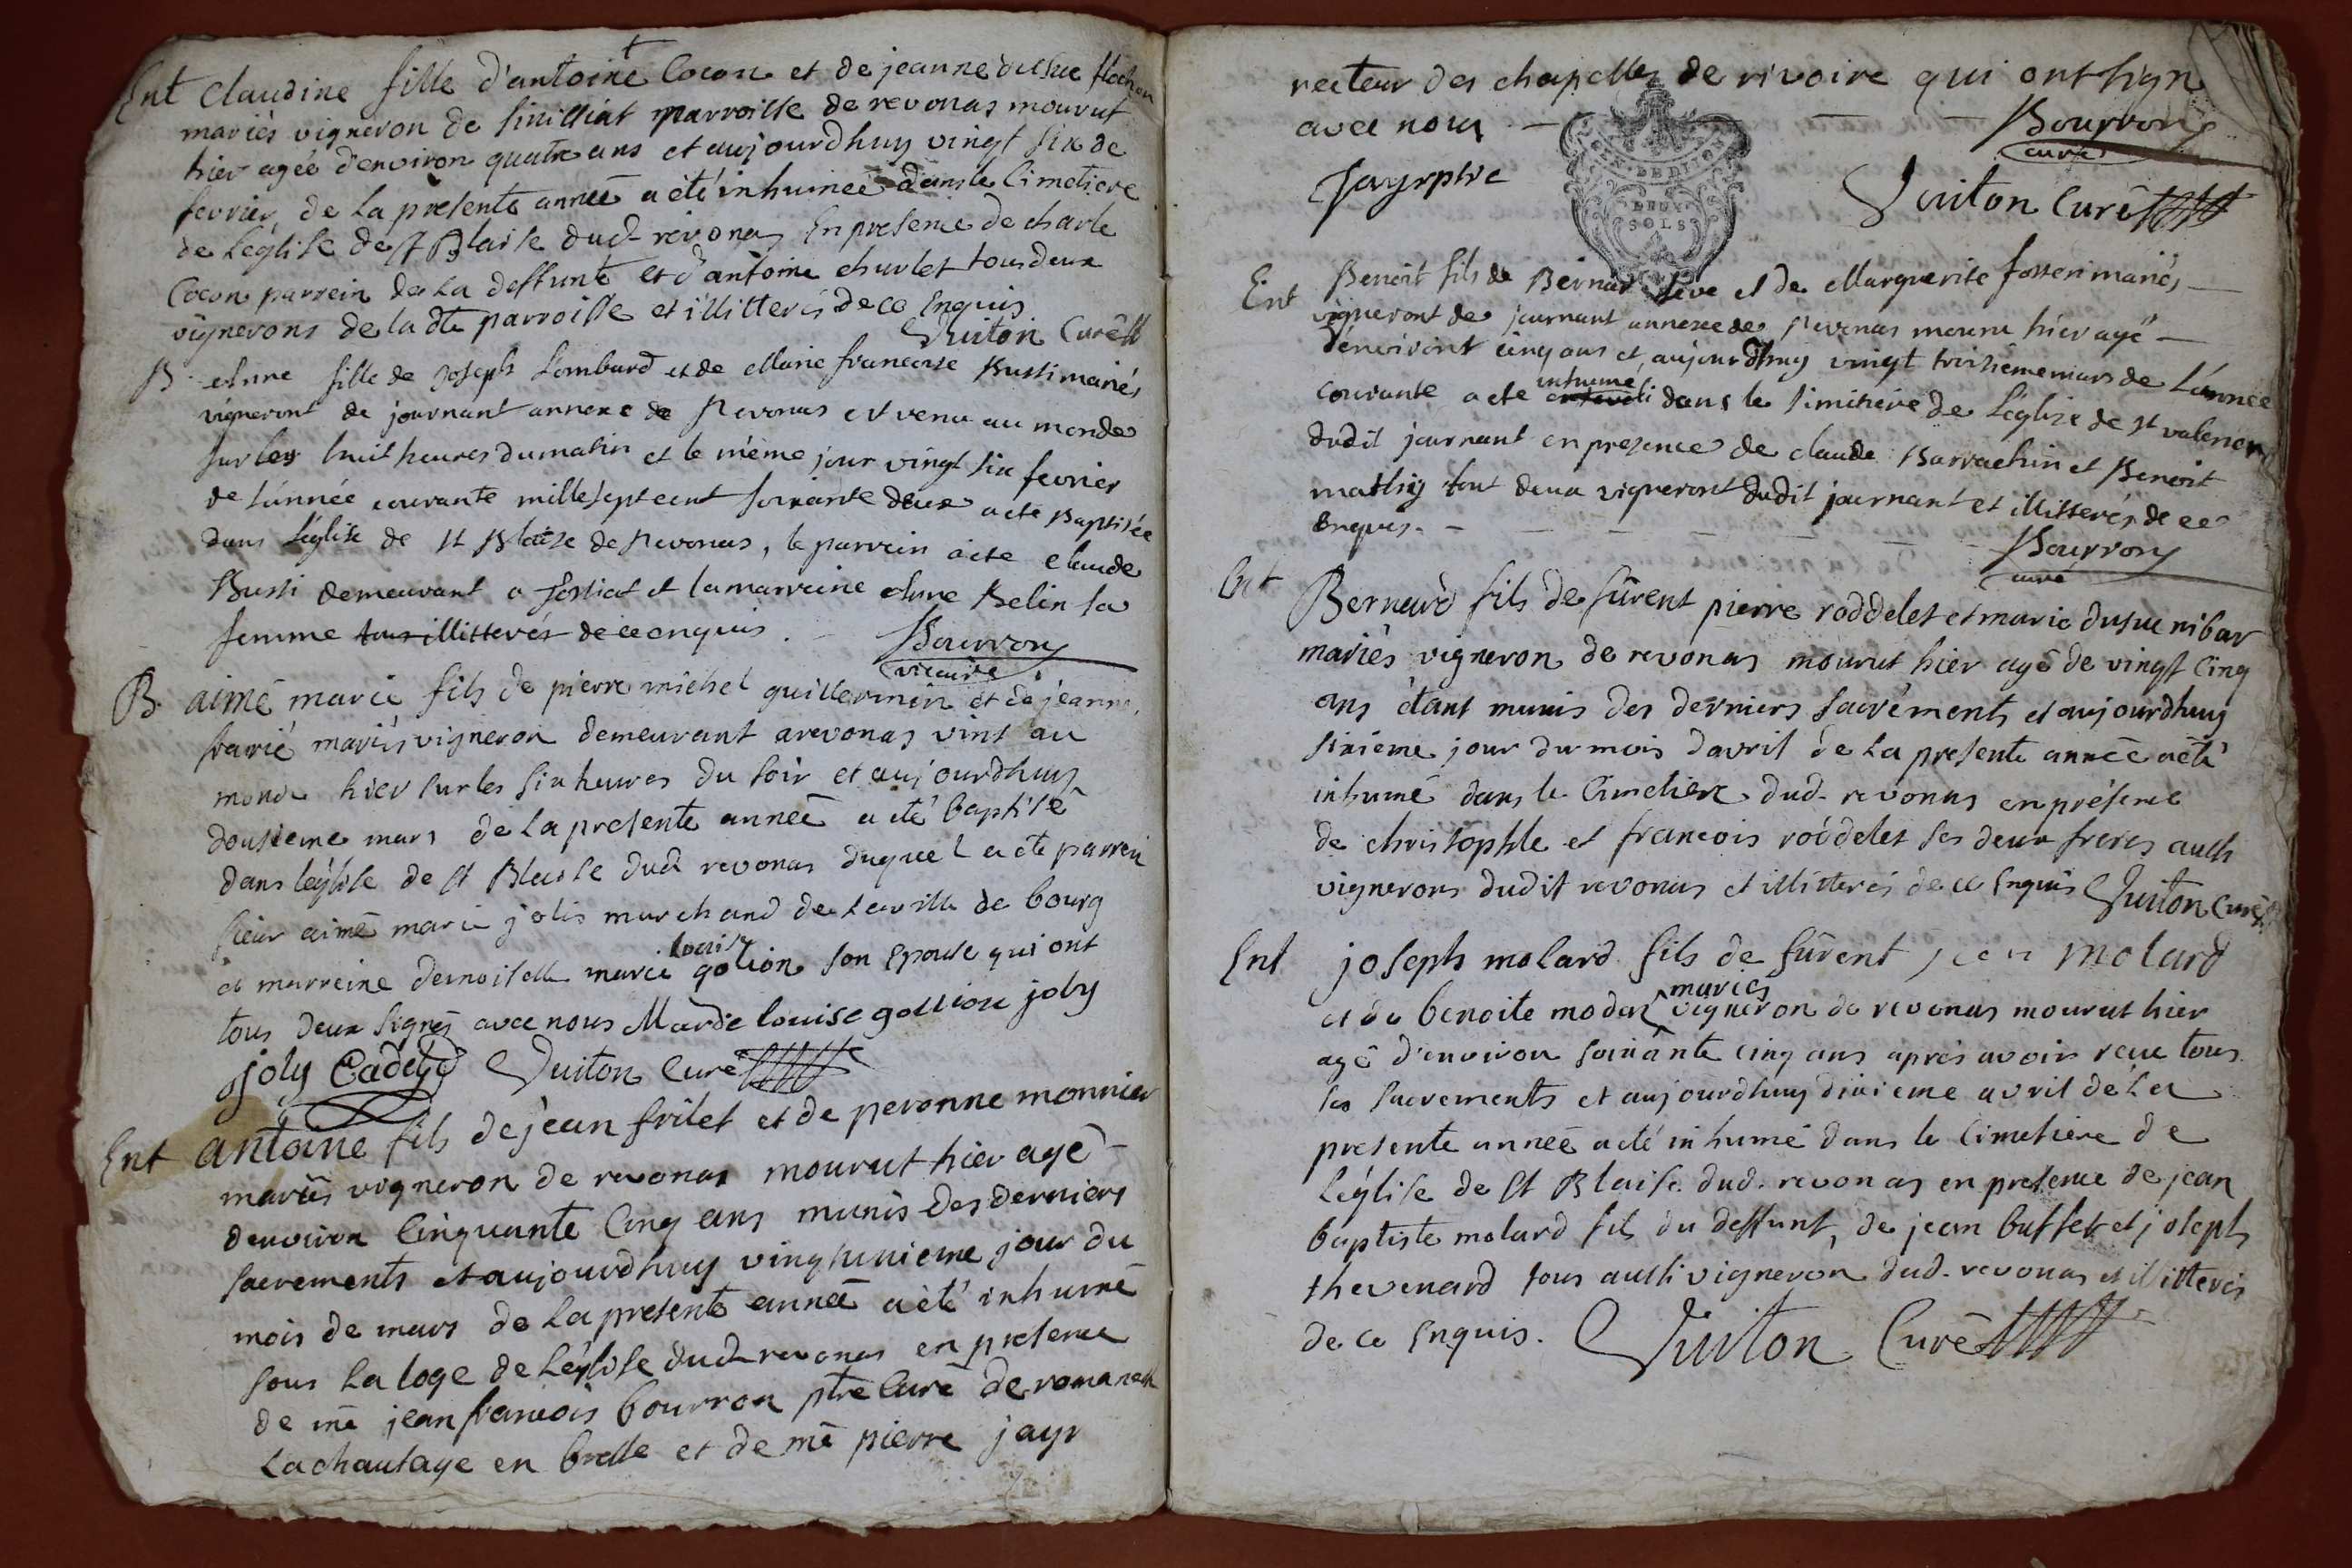 Ent claudine fille d'antoine Cocon et de jeanne dusuc
mariés vigneron de sinilliat parroisse de revonas mourut
hier agée d'environ quatre ans et aujourdhuy vingt six de
fevrier de la presente anneé a été inhumeé dans le Cimetiere
de L'église de st Blaise dud. revonas En presence de charle
Cocon parrein de La deffunte et d'antoine churlet tous deux
vignerons de la dte parroisse et illitterés de ce Enquis
Vuiton Curé
B. Anne fille de Joseph Lombard et de Marie francoise Bussi mariés
vigneront de journant annexe de Revonas est venu au monde
sur les huit heures du matin et le même jour vingt six fevrier
de l'année courante mille sept cent soixante deux a eté Baptisée
dans l'église de st Blaise de Revonas, le parrein a eté claude
Bussi demeurant a fossiat et la marreine Anne Belin sa
femme tous illitterés de ce enquis.
Bourron
vicaire
B. aimé marie fils de pierre michel guillermin et de jeanne
frarié mariés vigneron demeurant a revonas vint au
monde hier sur les six heures du soir et aujourdhuy
dousieme mars de la presente anneé a été baptisé
dans l'église de st Blaise dud. revonas duquel a été parrein
sieur aimé marie jolis marchand de la ville de bourg
et marreine demoiselle marie louise golion son Epouse qui ont
tous deux signés avec nous Marie louise gollion joly
joly Cadet Vuiton Curé
Ent antoine fils de jean frilet et de peronne monnier
mariés vigneron de revonas mourut hier agé
denviron Cinquante Cinq ans munis des derniers
sacrements et aujourdhuy vingt unieme jour du
mois de mars de la presente anneé a été inhumé
sous la loge de L'église dud. revonas en presence
de me jean francois bourron ptre Curé de romaneche
La chautage en bresse et de me pierre jayr
recteur des chapelles de rivoire qui ont sign
avec nous
Bourron
curé
Jayr ptre
Vuiton Curé
GEN. DE DIJON
DEUX
SOLS
Ent Benoit fils de Bernard seve et de Marguerite mariés
vigneront de journant annexe de Revonas mouru hier agé
d'environt cinq ans et aujourdhuy vingt troisieme mars de L'année
courante a eté enseveli inhumé dans le simitiere de L'église de st valerien
dudit journant en presence de claude Barrachin et Benoit
mathy tout deux vigneront dudit journant et illitterés de ce
enquis.
Bourron
curé
Ent Bernard fils de fûrent pierre roddelet et marie dusuc nibar
mariés vigneron de revonas mourut hier agé de vingt Cinq
ans étant munis des derniers sacréments et aujourdhuy
sixieme jour du mois d'avril de La presente anneé a été
inhumé dans le Cimetiere dud. revonas en présence
de christophle et francois roddelet ses deux freres aussi
vignerons dudit revonas et illitterés de ce Enquis Vuiton Curé
Ent joseph molard fils de fûrent jean molard
et de benoite moden mariés vigneron de revonas mourut hier
agé d'environ soixante cinq ans aprés avoir reçu tous
les sacrements et aujourdhuy dixieme avril de La
presente anneé a été inhumé dans le Cimetiere de
L'église de st Blaise dud. revonas en presence de jean
baptiste molard fils du deffunt, de jean buffet et joseph
thevenard tous aussi vigneron dud. revonas et illitterés
de ce Enquis. Vuiton Curé